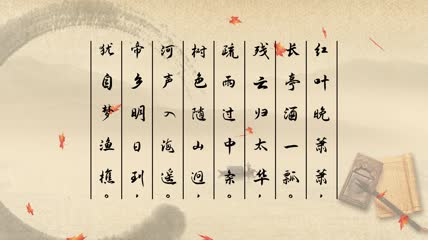 红叶晚萧萧，
长亭酒一瓢。
残云归太华，
疏雨过中条。
树色随山迥，
河声入海遥。
帝乡明日到，
犹自梦渔樵。